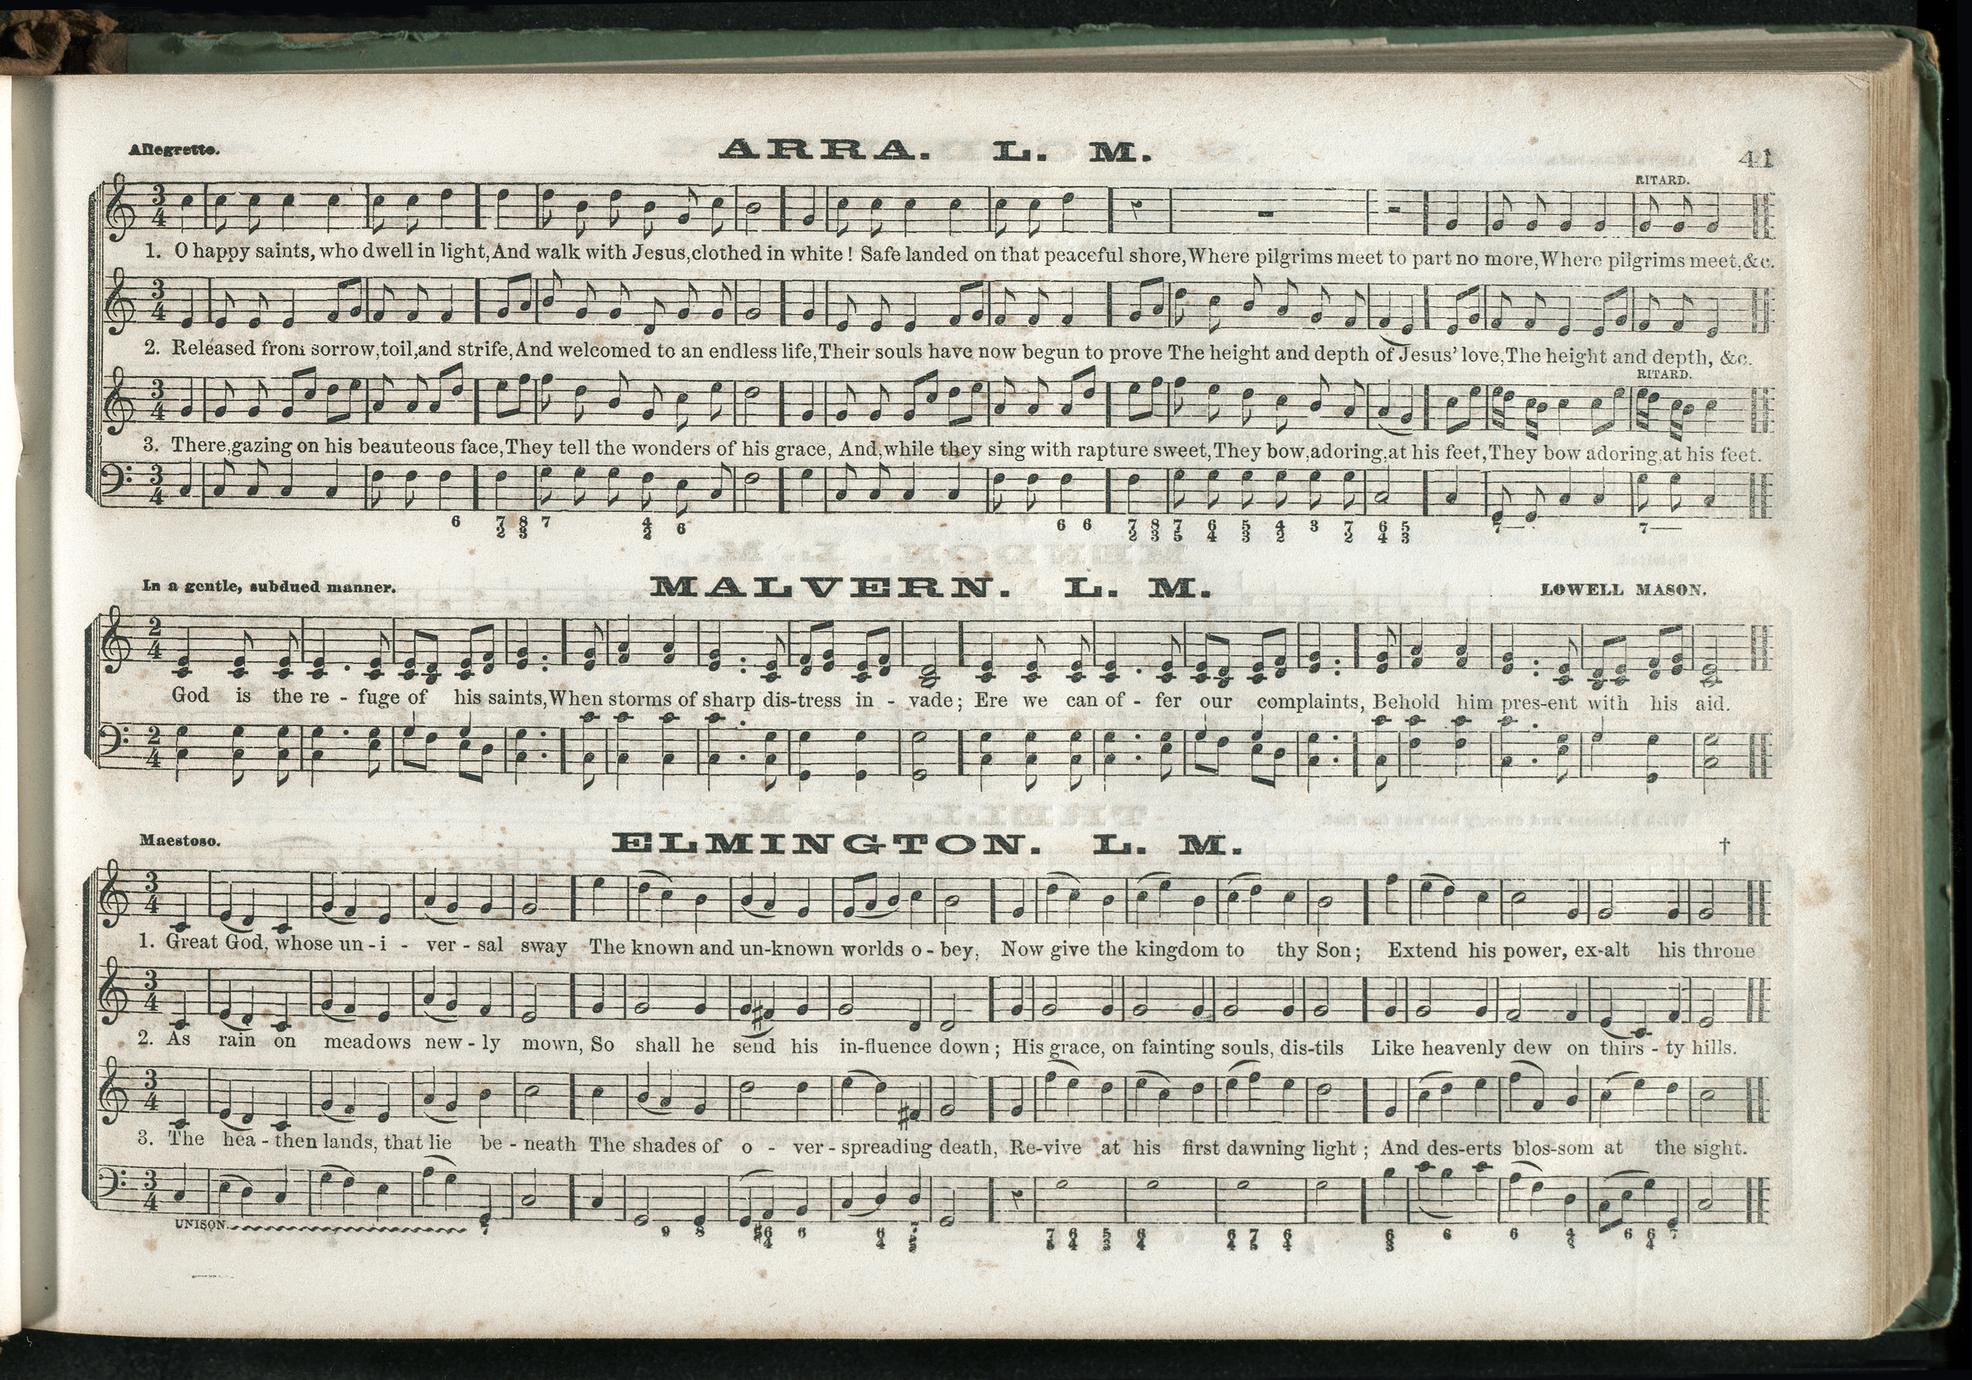 Allegretto.
ARRA. L. M.
41
RITARD.
1. O happy saints, who dwell in light, And walk with Jesus, clothed in white! Safe landed on that peaceful shore, Where pilgrims meet to part no more, Where pilgrims meet, &c.
2. Released from sorrow, toil, and strife, And welcomed to an endless life, Their souls have now begun to prove The height and depth of Jesus' love, The height and depth, &c.
RITARD.
3. There, gazing on his beauteous face, They tell the wonders of his grace, And, while they sing with rapture sweet, They bow, adoring, at his feet, They bow adoring, at his feet.
In a gentle, subdued manner.
MALVERN. L. M.
LOWELL MASON.
God is the re - fuge of his saints, When storms of sharp dis-tress in - vade; Ere we can of - fer our complaints, Behold him pres-ent with his aid.
Maestoso.
ELMINGTON. L. M.
†
1. Great God, whose un - i - ver - sal sway The known and un-known worlds o - bey, Now give the kingdom to thy Son; Extend his power, ex-alt his throne
2. As rain on meadows new - ly mown, So shall he send his in-fluence down; His grace, on fainting souls, dis-tils Like heavenly dew on thirs - ty hills.
3. The hea - then lands, that lie be - neath The shades of o - ver - spreading death, Re-vive at his first dawning light; And des-erts blos-som at the sight.
UNISON.